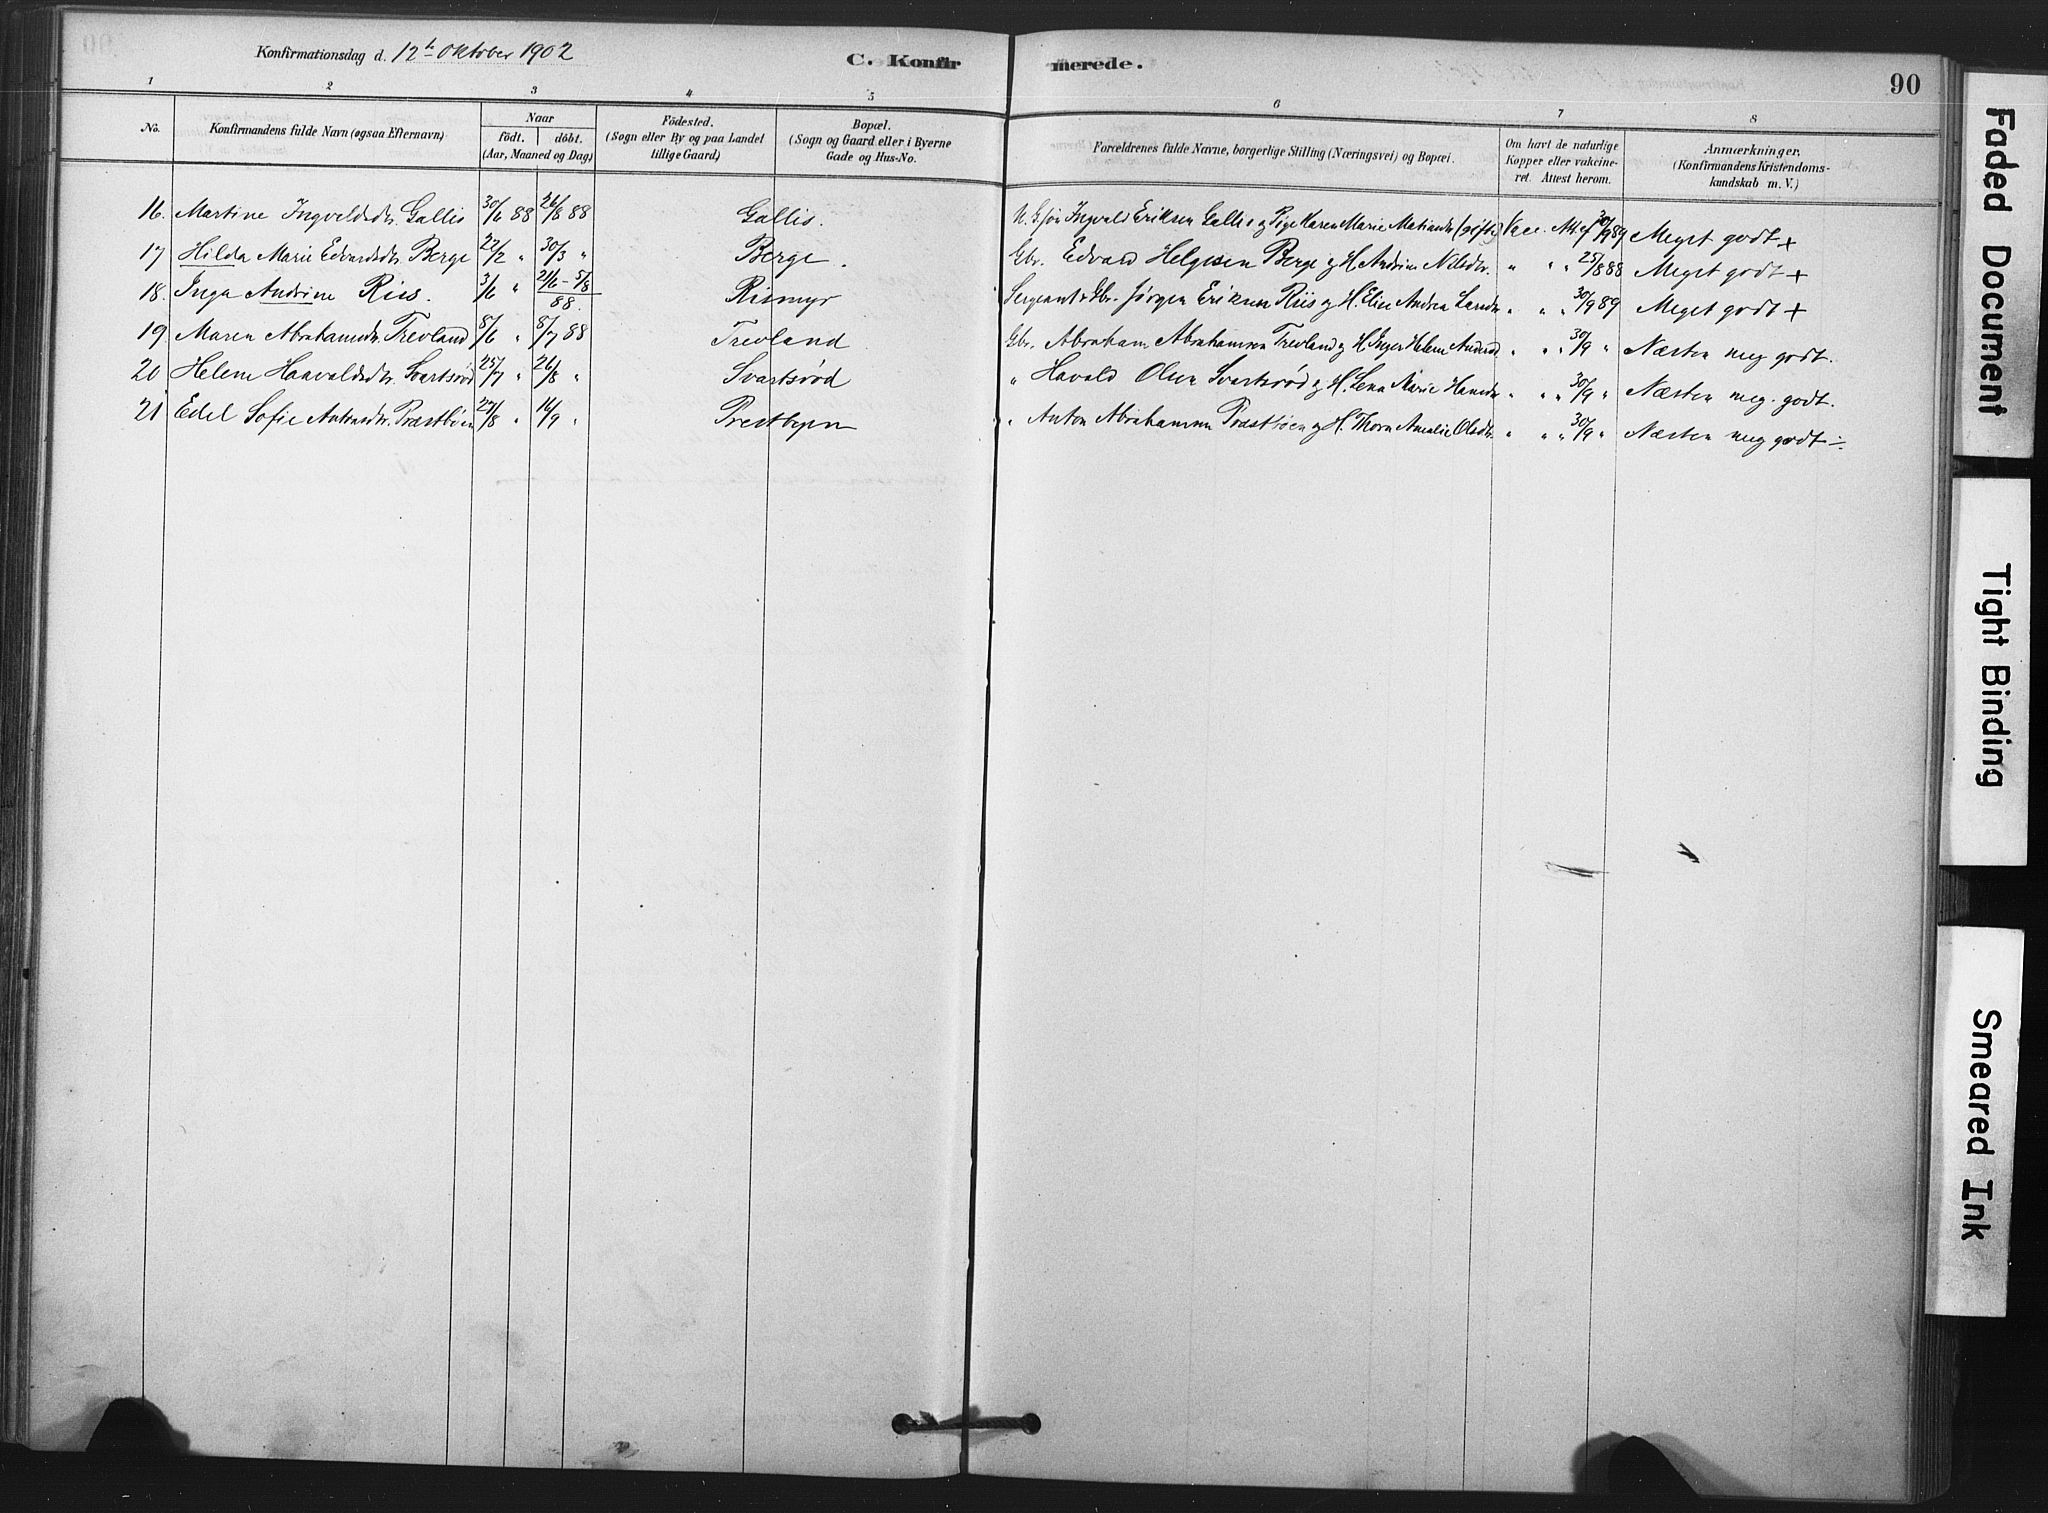 Konfirmationsdag d. 12te Oktober 1902 C. Konfirmerede. 90
1 2 3 4 5 6 7 8
No. Konfirmandens fulde Navn (øgsaa Efternavn) Naar födt. döbt. (Aar, Maaned og Dag) Födested. (Sogn eller By og paa Landet tillige Gaard) Bopæl. (Sogn og Gaard eller i Byerne Gade og Hus-No. Forældrenes fulde Navne, borgerlige Stilling (Næringsvei) og Bopæl. Om havt de naturlige Kopper eller vakcineret. Attest herom. Anmærkninger, (Konfirmandens Kristendomskundskab m. V.)
16. Martine Ingvaldsdtr. Gallis 30/6 88 26/8 88 Gallis. Ingvald Eriksen Gallis og Pige Karen Marie (gifte) Vacc. 30/9 89 Meget godt +
17 Hilda Marie Edvardsdtr. Berge 22/2 " 30/3 " Berge. Gbr. Edvard Helgesen Berge og H. Andrine Nilsdtr. " " 25/8 88 Meget godt +
18. Inga Andrine Riis. 3/6 " 21/6 - 5/8 88. Rismyr Sergeant & Gbr. Jørgen Eriksen Riis og H. Elise Andrea Larsdtr " " 30/9 89 Meget godt +
19 Maren Abrahamsdtr. Trevland 8/6 " 8/7 88 Trevland Gbr. Abraham Abrahamsen Trevland og H. Inger Helene Andersd " " 30/9 " Næsten meg godt.
20 Helene Haavaldsdtr. Svartsrød 25/7 " 26/8 " Svartsrød " Havald Olsen Svartsrød og H. Lena Marie Hansdtr " " 30/9 " Næsten meg. godt.
21 Edel Sofie Antonsdtr. Præstbøen 27/8 " 16/9 " Prestbyen " Anton Abrahamsen Præstbøen og H. Thora Amalie Olsdtr. " " 30/9 " Næsten meg godt ÷
Faded Document
Tight Binding
Smeared Ink